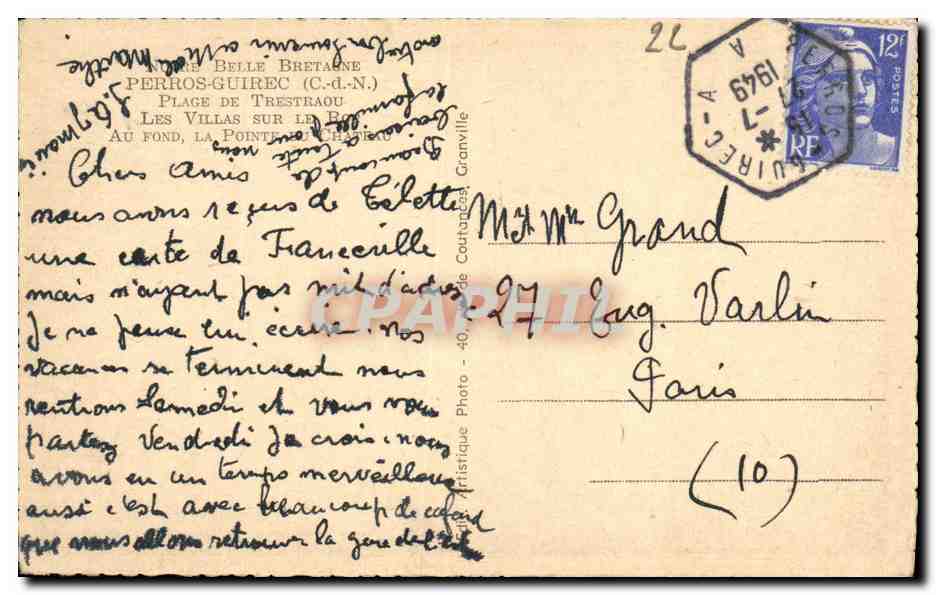 22
NOTRE BELLE BRETAGNE
PERROS-GUIREC (C.-d.-N.)
PLAGE DE TRESTRAOU
LES VILLAS SUR LE ROC
AU FOND, LA POINTE DU CHATEAU
Chers Amis
nous avons reçus de Télette
une carte de Franceville
mais n'ayant pas mit d'adres
Je ne peux lui écrire. nos
vacances se terminent nous
rentrons Samedi et vous vous
partez Vendredi Je crois, nous
avons eu un temps merveilleux
aussi c'est avec beaucoup de cafard
que nous allons retrouver la gare de l'Est
Beaucoup de
à toute
la famille
Marthe
Artistique Photo - 40, de Coutances, Granville
PERROS-GUIREC-A
A
21 -7
1949
12F
POSTES
RF
M et Mme Grand
27 Eug. Varlin
Paris
(10)
CPAPHIL